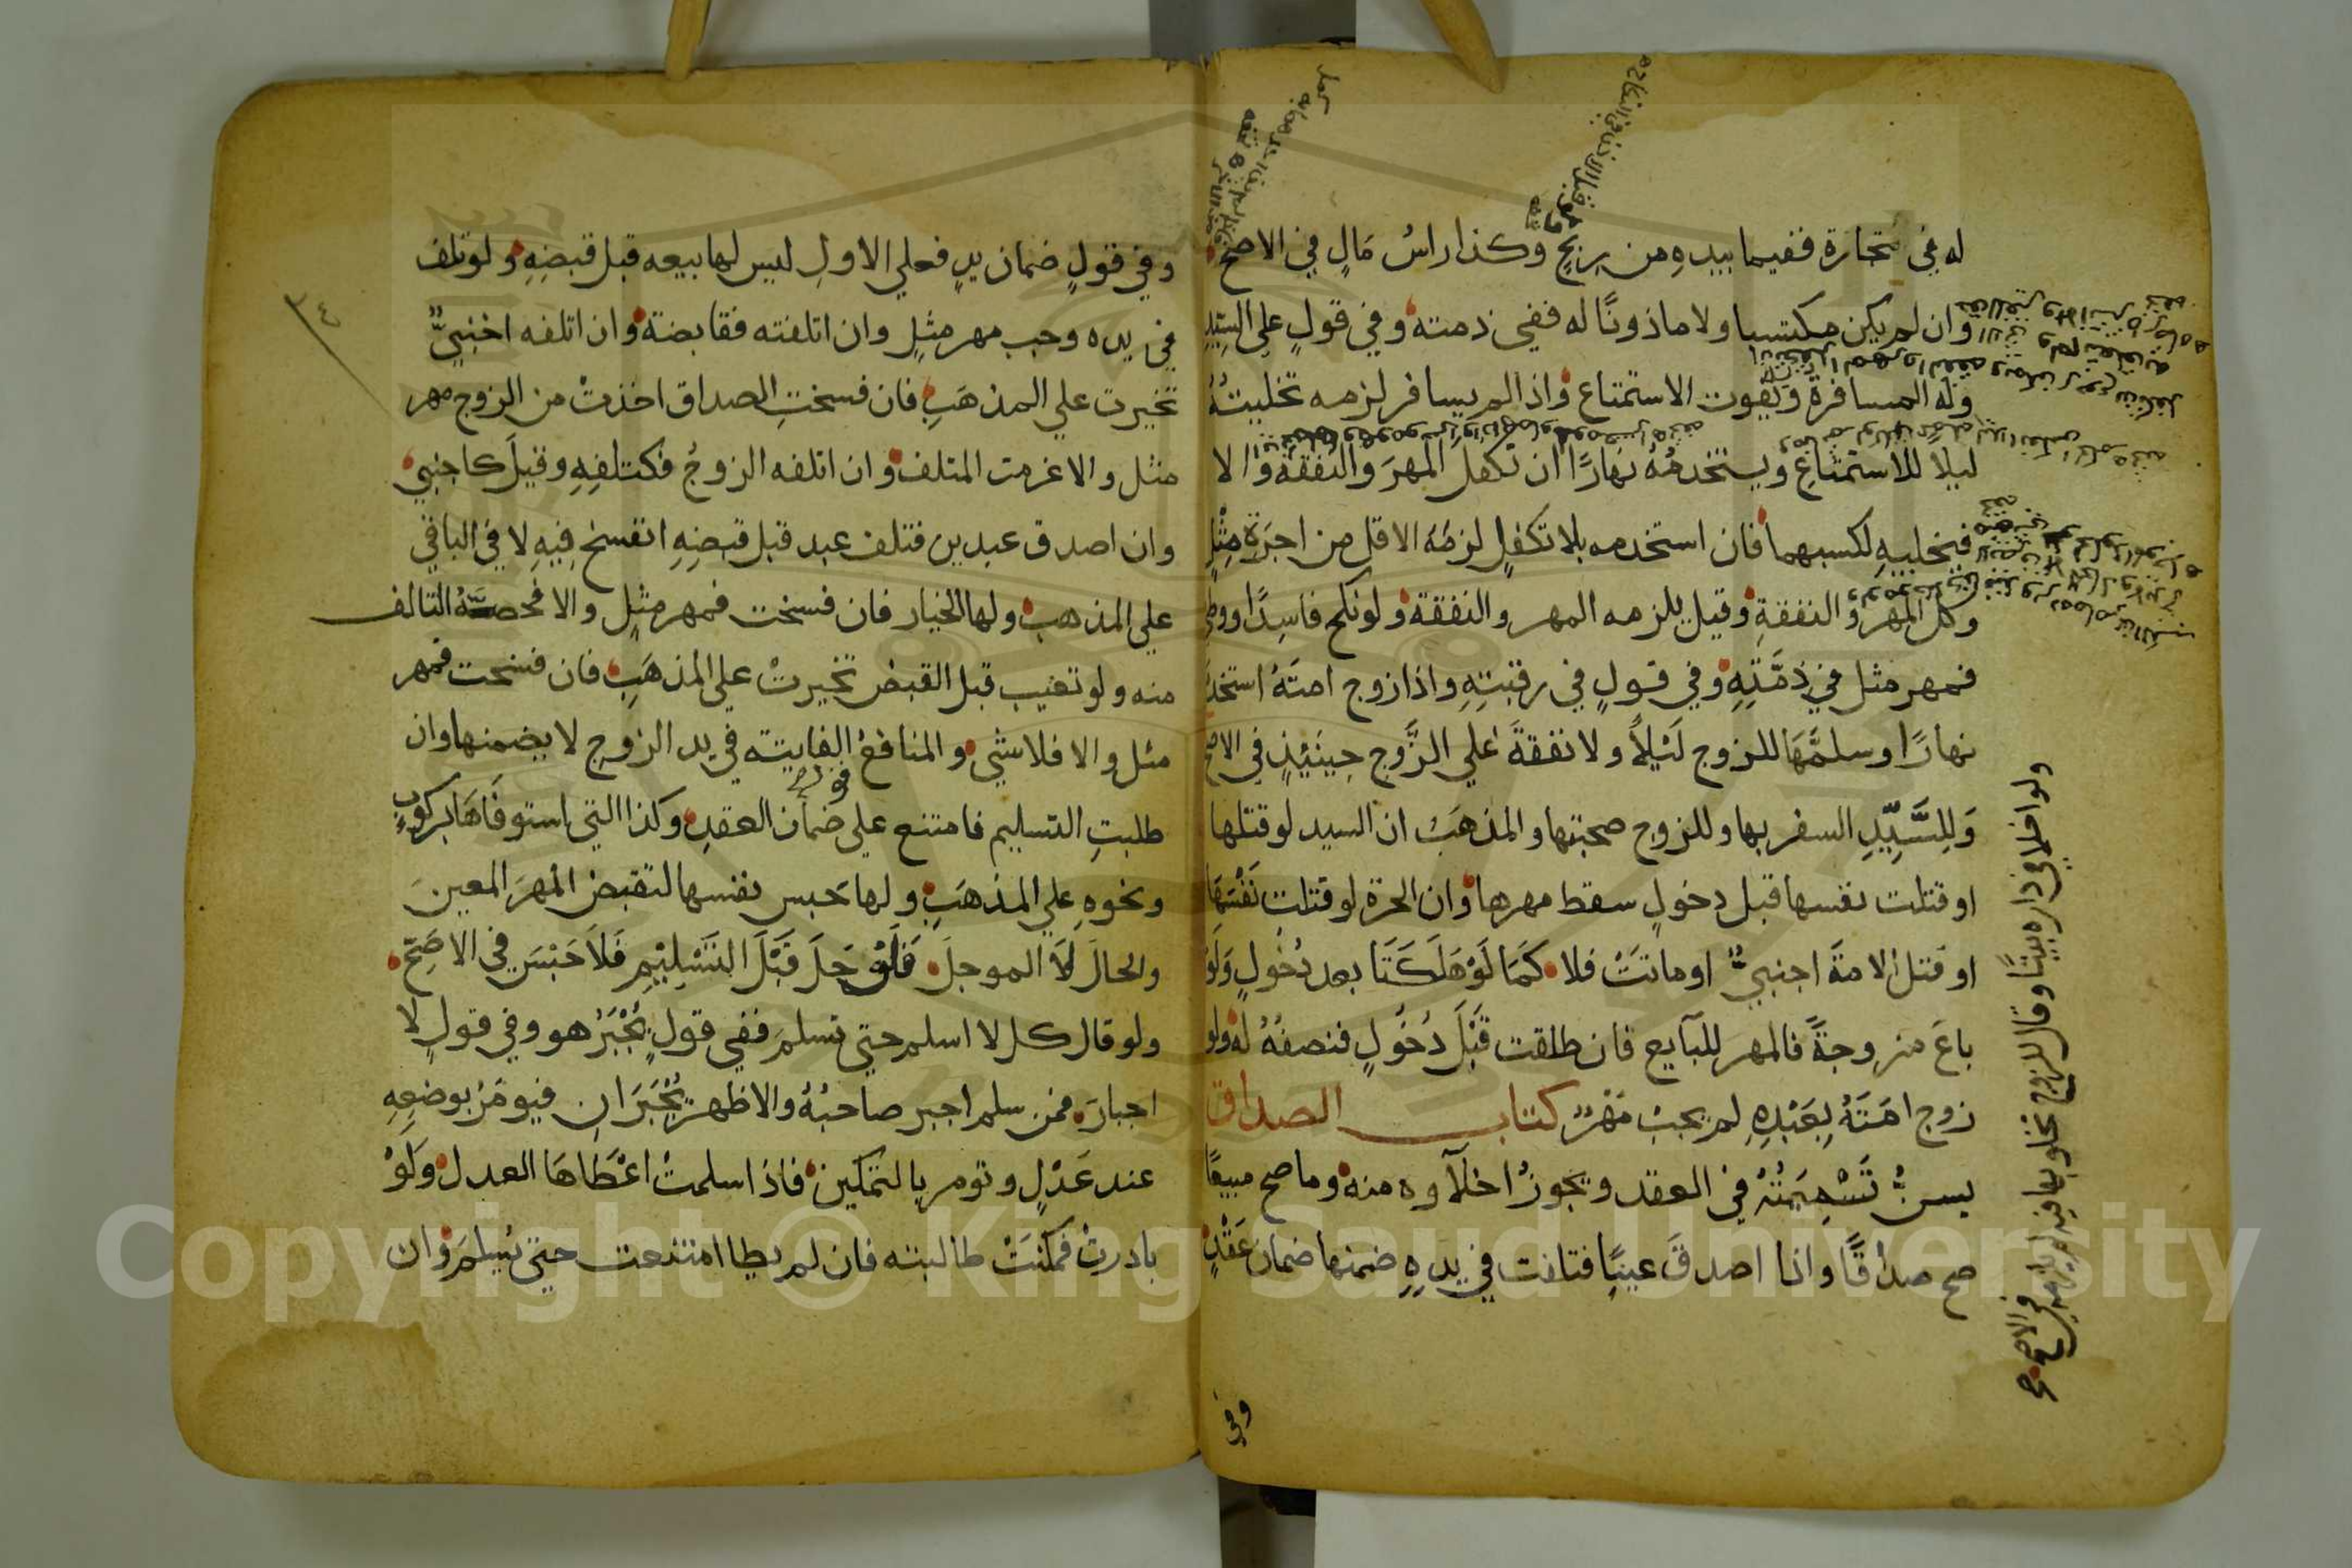 له في تجارة ففيما بيده من ربح وكذا راسُ مَالٍ في الاصح
وان لم يكن مكتسبا ولا ماذونًا له ففي ذمته وفي قولٍ على السيّدِ
وله المسافرة وتفوت الاستمتاع واذا لم يسافر لزمه تخليتهُ
ليلا للاستمتاعِ ويستخدمُهُ نهارًا ان تكفل المهرَ والنفقة والا
فيخليهِ لكسبهما فان استخدمه بلا تكفلٍ لزمَهُ الاقل من اجرَةِ مِثْلٍ
وكل المهر والنفقةِ وقيل يلزمه المهر والنفقة ولو نكح فاسِدًا ووطي
فمهر مثل في ذمَّتِهِ وفي قولٍ في رقبتِهِ واذا زوج امتَهُ استخدَ
نهارًا وسلمَّهَا للزوج لَيْلاً ولا نفقةَ علي الزَّوج حِينَئِذٍ في الاصح
وَلِلسَّيِّدِ السفر بها وللزوج صحبتها والمذهَبُ ان السيد لو قتلها
او قتلت نفسها قبل دخولٍ سقط مهرها وان الحرة لو قتلت نَفْسَهَا
او قتل الامةَ اجنبيٌّ او ماتَتْ فلا كَمَا لَوْ هَلَكَتَا بعد دُخُولٍ وَلَوْ
باعَ مزوجةً فالمهر للبآيع فان طلقت قَبْلَ دُخُولٍ فنصفُهُ له ولو
زوج امَتَهُ بِعَبْدِهِ لم يجبْ مَهْرٌ كتاب الصداق
يسنُّ تَسْمِيَتُهُ في العقد ويجوزُ اخلآوه منه وما صح مبيعًا
صح صداقًا واذا اصدقَ عينًا فتلفت في يدِهِ ضمنها ضمانَ عَقْدٍ
ولو اخلا في داره بيتًا وقال للزوج تخلو بها فيه لم يلزمه
في الاصح صح
وفي
٣٤
وفي قولٍ ضمان يدٍ فعلي الاولِ ليس لها بيعه قبل قبضِهِ ولو تلف
في يده وجب مهر مثلٍ وان اتلفته فقابضة وان اتلفه اجنبيٌّ
تخيرت علي المذهَبِ فان فسختِ الصداق اخذتْ من الزوج مهر
مثل والا غرمت المتلف وان اتلفه الزوجُ فكتلفِهِ وقيلَ كاجنبي
وان اصدق عبدين فتلف عبد قبل قبضِهِ انفسخ فِيهِ لا في الباقي
علي المذهب ولها الخيار فان فسخت فمهر مثلٍ والا فحصَّةُ التالف
منه ولو تعيب قبل القبض تخيرتْ علي المذهَبِ فان فسخت فمهر
مثل والا فلا شي والمنافعُ الفايتة في يد الزوج لا يضمنها وان
طلبتِ التسليم فامتنع على ضمان العقدِ وكذا التي استوفَاهَا بركوبٍ
ونحوهِ علي المذهَبِ ولها حَبس نفسها لتقبض المهرَ المعينَ
والحالَ لَا الموجلَ فَلَوْ حَلَ قَبْلَ التَسْلِيْمِ فَلَا حَبْسَ في الاصَحّ
ولو قال كل لا اسلم حتي تسلمَ ففي قولٍ يُجْبَرُ هو وفي قولٍ لا
اجبارَ فمن سلم اجبر صاحبُهُ والاظهر يُجْبَرَانِ فيومَرُ بوضعِهِ
عند عَدْلٍ وتومر بالتمكين فاذا سلمتْ اعْطَاهَا العدل وَلَوْ
بادرتْ فمَكَنَتْ طالبته فان لم يطا امتنعت حتي يُسلمَ وان
Copyright © King Saud University